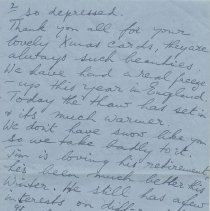 2
so depressed.
Thank you all for your
lovely Xmas cards, they are
always such beauties.
We have had a real freeze
- up this year in England.
Today the thaw has set in
& its much warmer.
We don't have snow like you
so we take badly to it.
Jim is loving his retirement,
he's been much better this
Winter. He still has a few
interests on